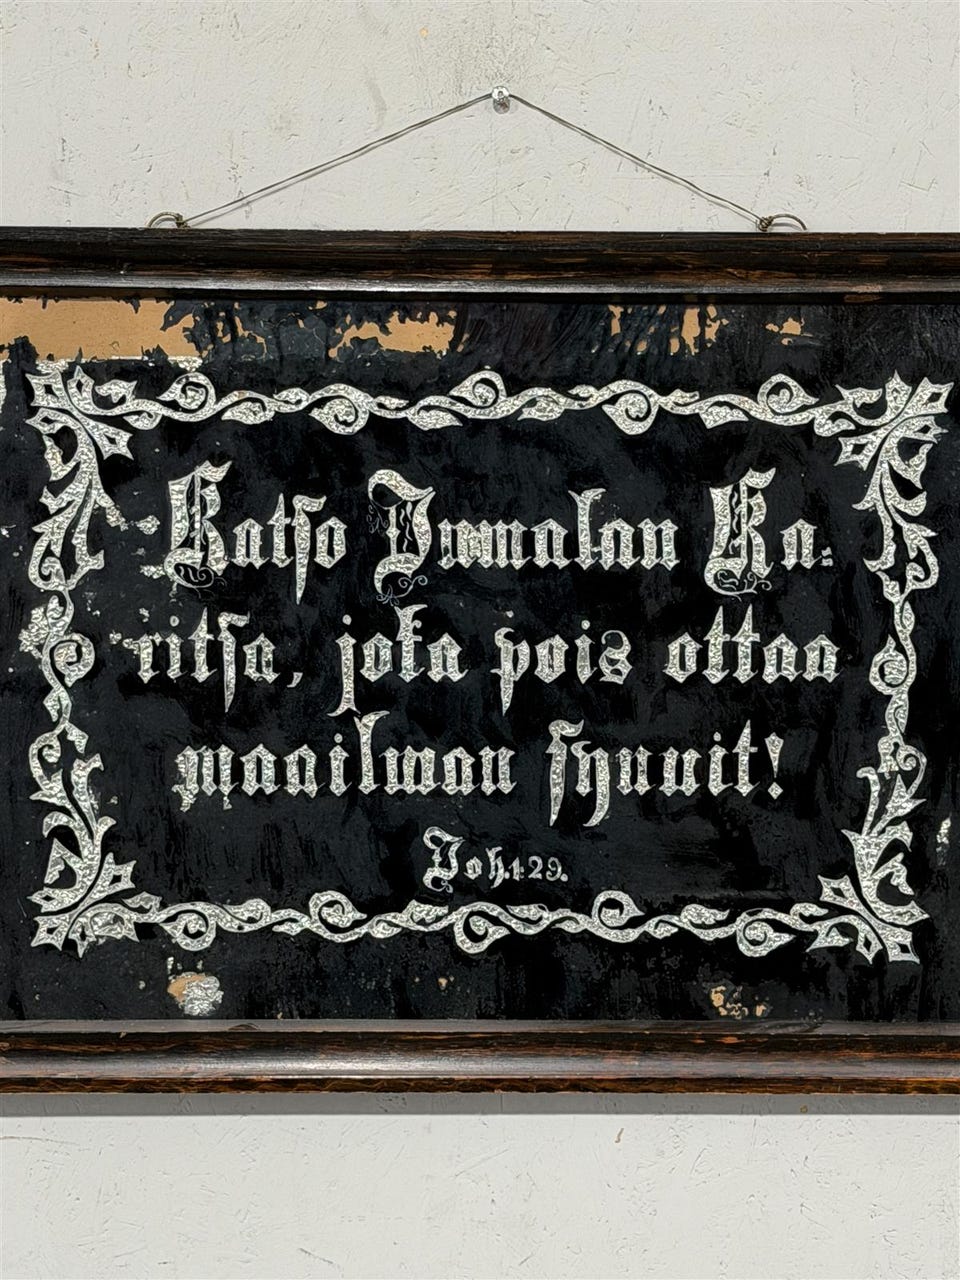 Katso Jumalan Ka-
ritsa, joka pois ottaa
maailman synnit!
Joh. 1:29.